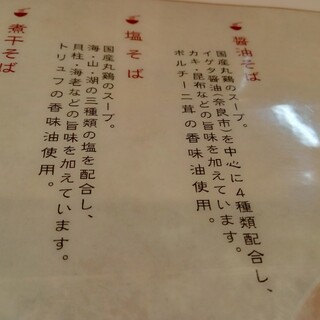 醤油そば
国産丸鶏のスープ。
イゲタ醤油(奈良市)を中心に4種類配合し、
カキ・昆布などの旨味を加えています。
ポルチーニ茸の香味油使用。
塩そば
国産丸鶏のスープ。
海・山・湖の三種類の塩を配合し、
貝柱・海老などの旨味を加えています。
トリュフの香味油使用。
煮干そば